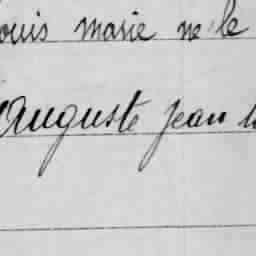 ouis marie ne le
Auguste jean